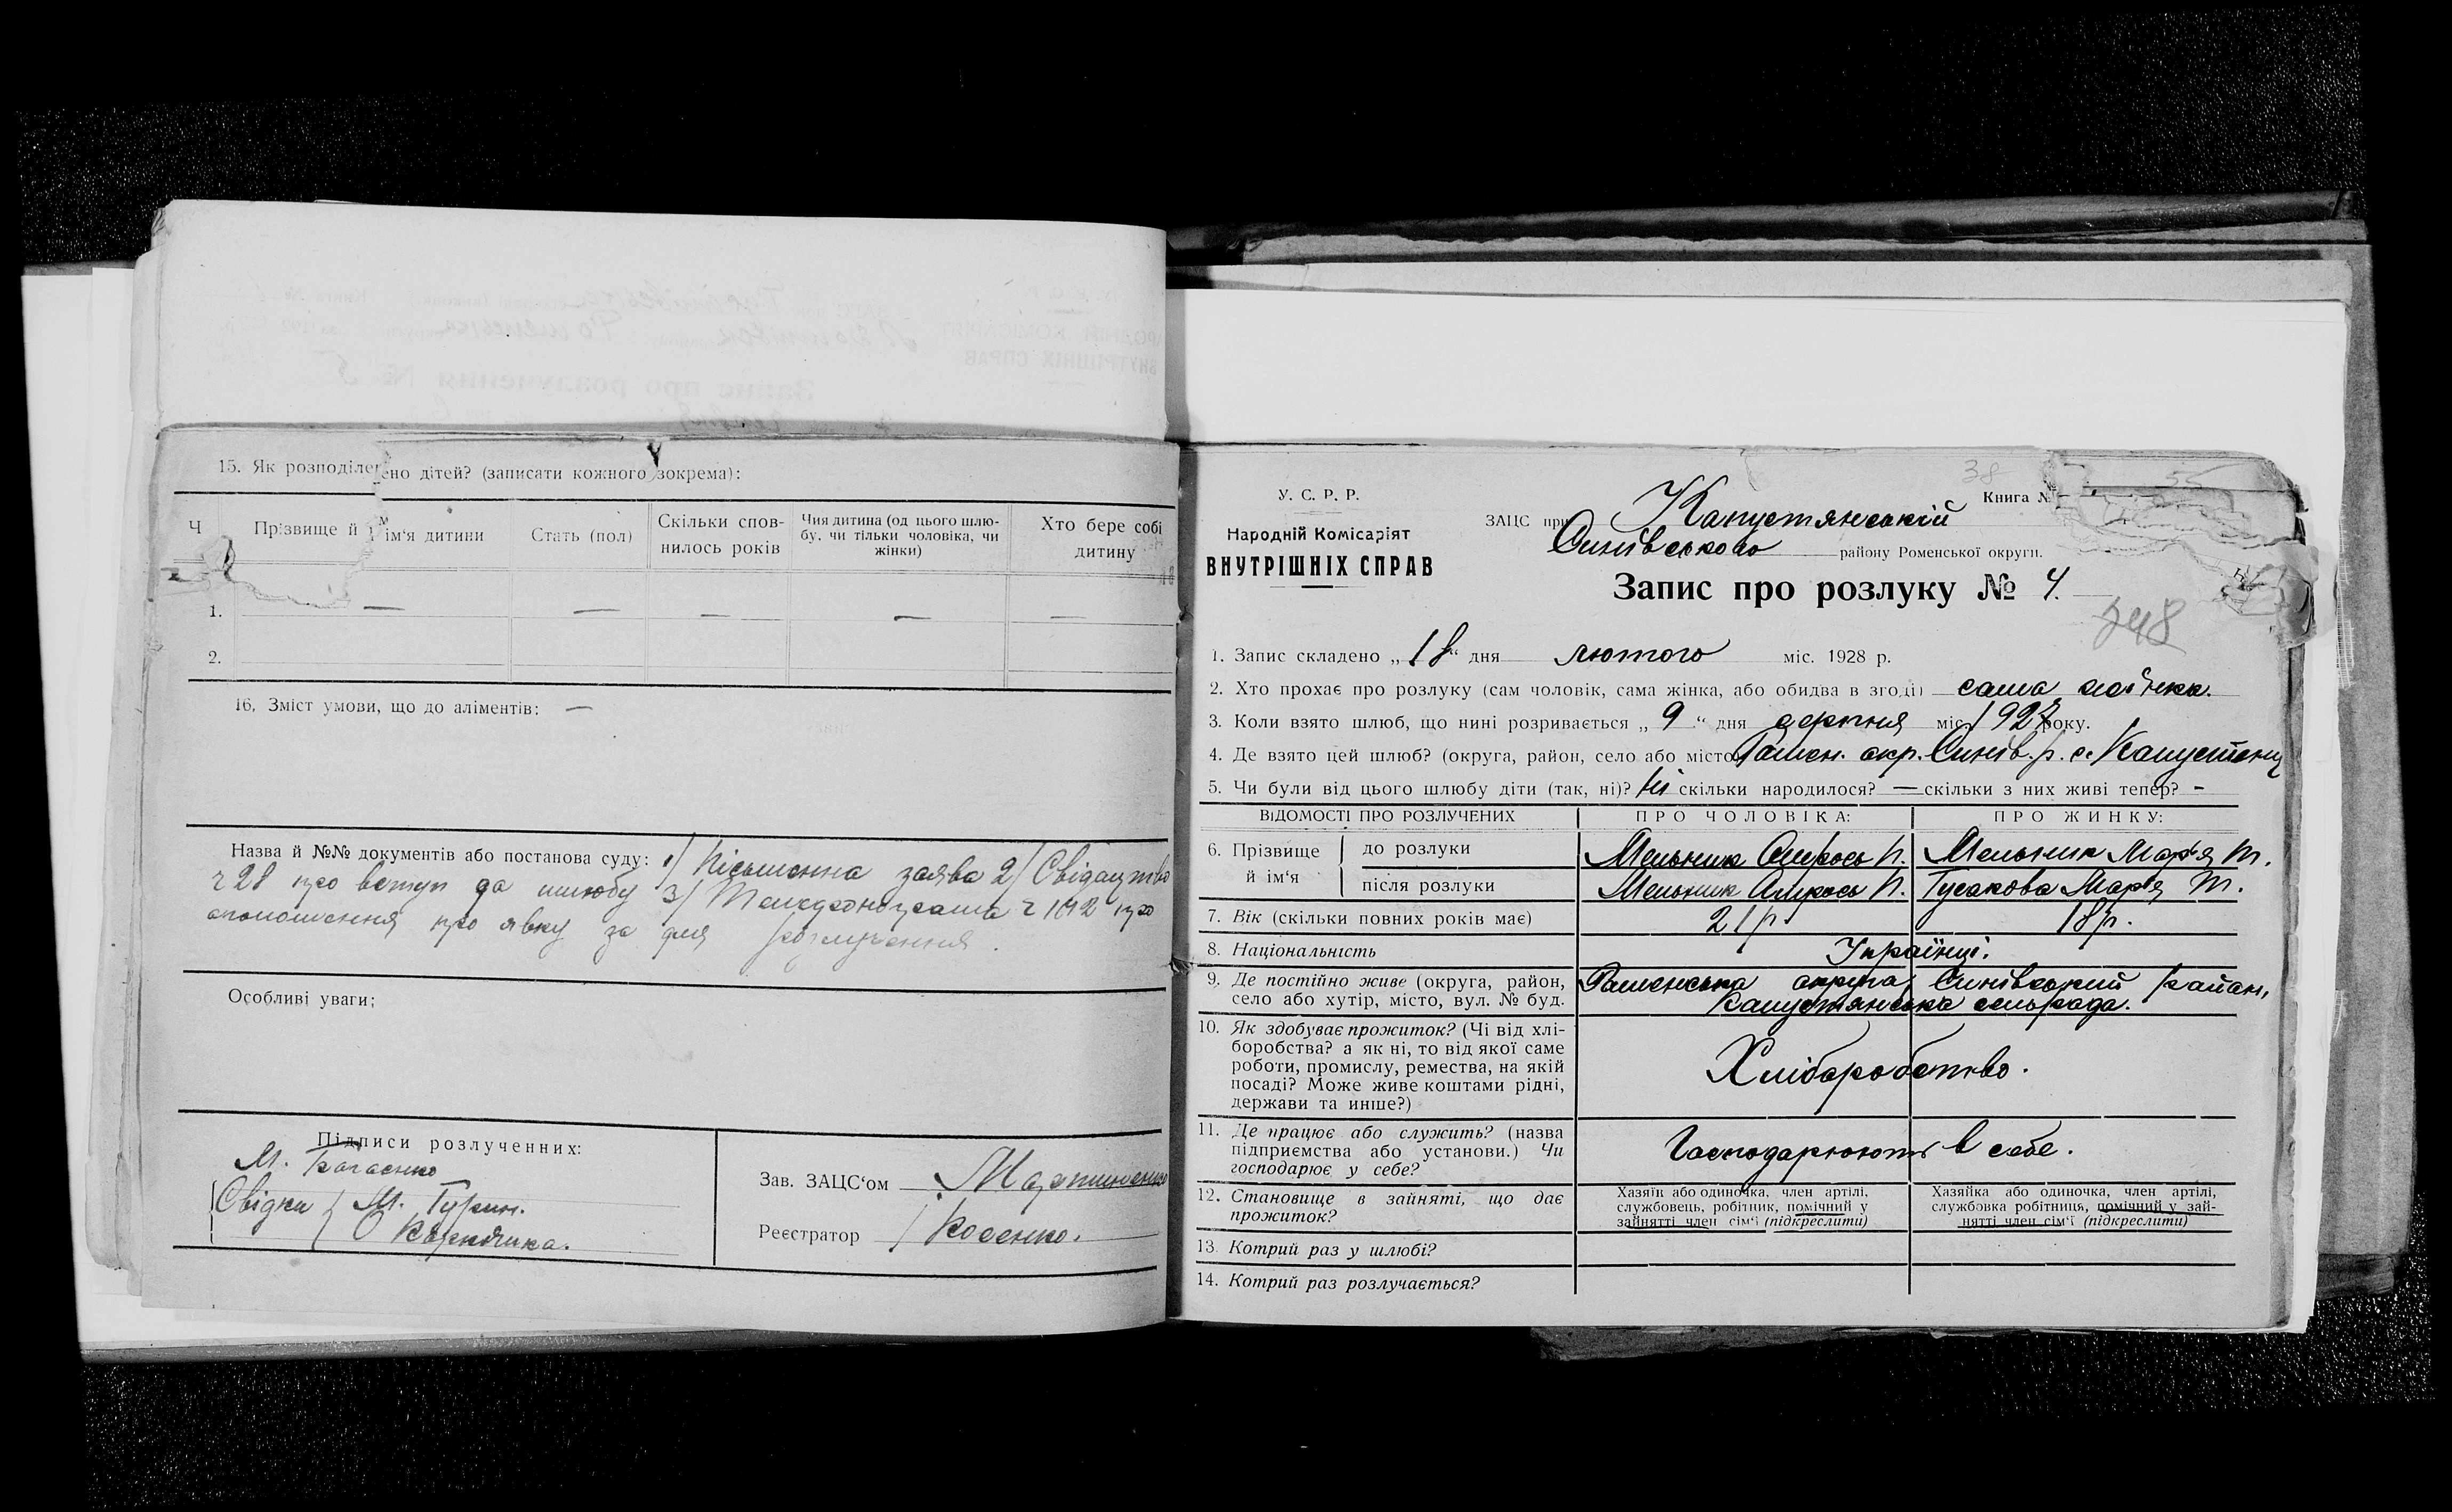 15. Як розподілено дітей? (записати кожного зокрема):
Ч
Прізвище й ім'я дитини
Стать (пол)
Скільки спов-
нилось років
Чия дитина (од цього шлю-
бу, чи тільки чоловіка, чи
жінки)
Хто бере собі
дитину
1. — — — — —
2.
16. Зміст умови, що до аліментів: —
Назва й №№ документів або постанова суду: 1/ Письменна заява 2/ Свідацтво
ч 28 про вступ до шлюбу 3/
про явку за для розлучення.
Особливі уваги;
Підписи розлученних:
М.
Свідки М.
Зав. ЗАЦС'ом Мартиненко
Реєстратор Косенко.
У. С. Р. Р.
Народній Комісаріят
ВНУТРІШНІХ СПРАВ
38
Книга №
55
ЗАЦС при Капустянській
Синівського району Роменської округи.
Запис про розлуку № 4.
248
1. Запис складено „18“ дня лютого міс. 1928 р.
2. Хто прохає про розлуку (сам чоловік, сама жінка, або обидва в згоді) сама жінка.
3. Коли взято шлюб, що нині розривається „9“ дня серпня міс 1927 року.
4. Де взято цей шлюб? (округа, район, село або місто) Ромен. окр. Синів. р. с. Капустенц
5. Чи були від цього шлюбу діти (так, ні)? Ні скільки народилося? — скільки з них живі тепер? -
ВІДОМОСТІ ПРО РОЗЛУЧЕНИХ
ПРО ЧОЛОВІКА:
ПРО ЖИНКУ:
6. Прізвище й ім'я
до розлуки Мельник Амрось П. Мельник Мар'я Т.
після розлуки Мельник Амрось П. Гусакова Мар'я Т.
7. Вік (скільки повних років має) 21 р 18 р.
8. Національність Українці.
9. Де постійно живе (округа, район,
село або хутір, місто, вул. № буд.
Роменська округа, Синівський район,
Капустянська сельрада.
10. Як здобуває прожиток? (Чі від хлі-
боробства? а як ні, то від якої саме
роботи, промислу, ремества, на якій
посаді? Може живе коштами рідні,
держави та инше?)
Хліборобство.
11. Де працює або служить? (назва
підприємства або установи.) Чи
господарює у себе?
Господарюють в себе.
12. Становище в зайняті, що дає
прожиток?
Хазяїн або одиночка, член артілі,
службовець, робітник, помічний у
зайнятті член сім'ї (підкреслити)
Хазяйка або одиночка, член артілі,
службовка робітниця, помічний у зай-
нятті член сім'ї (підкреслити)
13. Котрий раз у шлюбі?
14. Котрий раз розлучається?